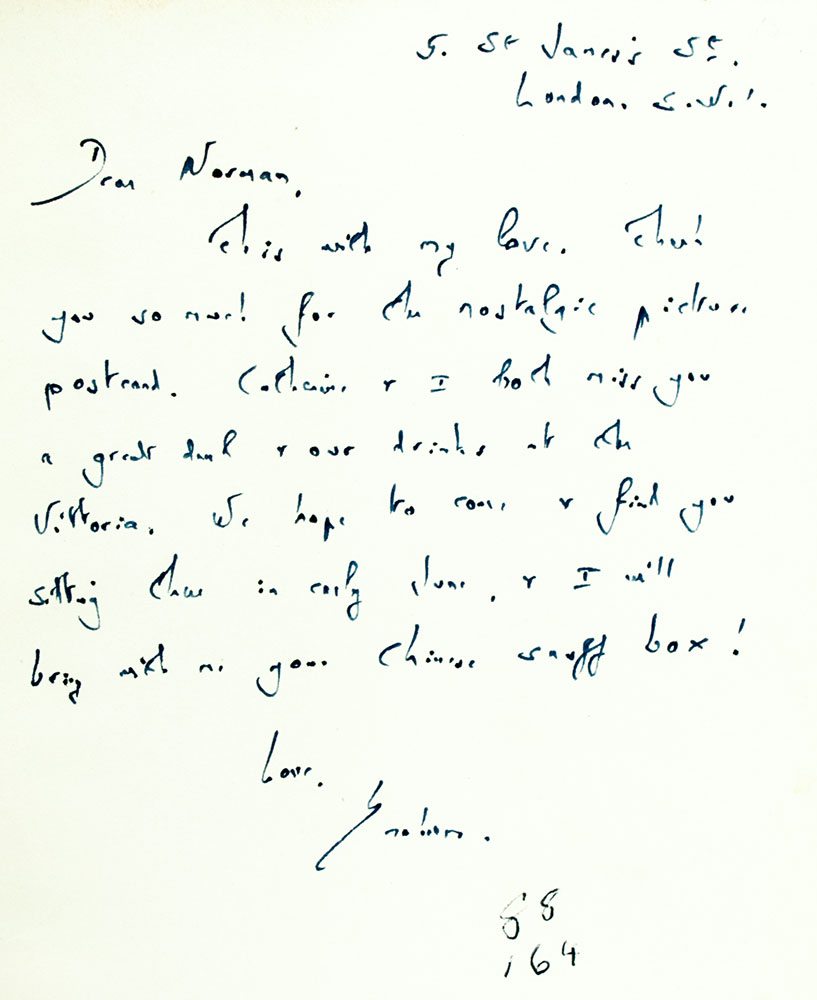 5. St James's St.
London. S.W.1.
Dear Norman,
This with my love. Thank
you so much for the nostalgic picture
postcard. Catherine & I both miss you
a great deal & our drinks at the
Vittoria. We hope to come & find you
sitting there in early June, & I will
bring with me your Chinese snuff box!
Love,
Graham.
88
164